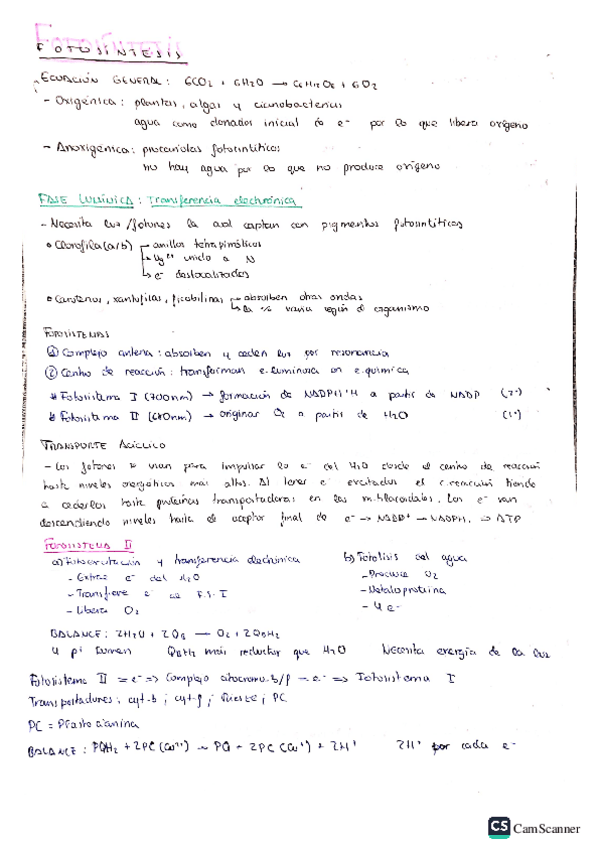 FOTOSÍNTESIS
FOTOSÍNTESIS
ECUACIÓN GENERAL: 6CO2 + 6H2O → C6H12O6 + 6O2
- Oxigénica: plantas, algas y cianobacterias
agua como donador inicial de e- por lo que libera oxígeno
- Anoxigénica: procariotas fotosintéticos
no hay agua por lo que no produce oxígeno
FASE LUMÍNICA: Transferencia electrónica
- Necesita luz/fotones la cual captan con pigmentos fotosintéticos
• Clorofila (a/b) anillos tetrapirrólicos
Mg2+ unido a N
e- deslocalizados
• Carotenos, xantofilas, ficobilinas absorben otras ondas
la % varía según el organismo
FOTOSISTEMAS
① Complejo antena: absorben y ceden luz por resonancia
② Centro de reacción: transforman e.lumínica en e.química
* Fotosistema I (700nm) → formación de NADPH+H a partir de NADP (2º)
* Fotosistema II (680nm) → originar O2 a partir de H2O (1º)
TRANSPORTE ACÍCLICO
- Los fotones se usan para impulsar los e- del H2O desde el centro de reacción
hasta niveles energéticos más altos. Al tener e- excitados el c.reacción tiende
a cederlos hasta proteínas transportadoras en las m.tilacoidales. Los e- van
descendiendo niveles hasta el aceptor final de e- → NADP+ → NADPH. → ATP
FOTOSISTEMA II
a) Fotoexcitación y transferencia electrónica
- Extrae e- del H2O
- Transfiere e- al F.S. I
- Libera O2
b) Fotólisis del agua
- Produce O2
- Metaloproteína
- 4 e-
BALANCE: 2H2O + 2QB → O2 + 2QBH2
QBH2 más reductor que H2O Necesita energía de la luz
Fotosistema II = e- => Complejo citocromo-b/f - e- => Fotosistema I
Transportadores: cyt-b; cyt-f; PC
PC = Plastocianina
BALANCE: PQH2 + 2PC (Cu2+) → PQ + 2PC (Cu+) + 2H+ 2H+ por cada e-
CS CamScanner